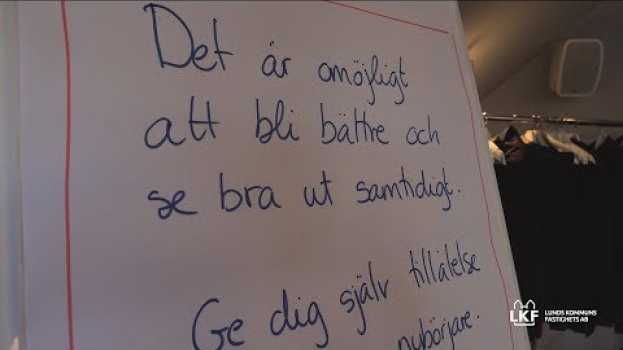 Det är omöjligt
att bli bättre och
se bra ut samtidigt.
Ge dig själv tillålelse
nybörjare.
LKF
LUNDS KOMMUNS
FASTIGHETS AB